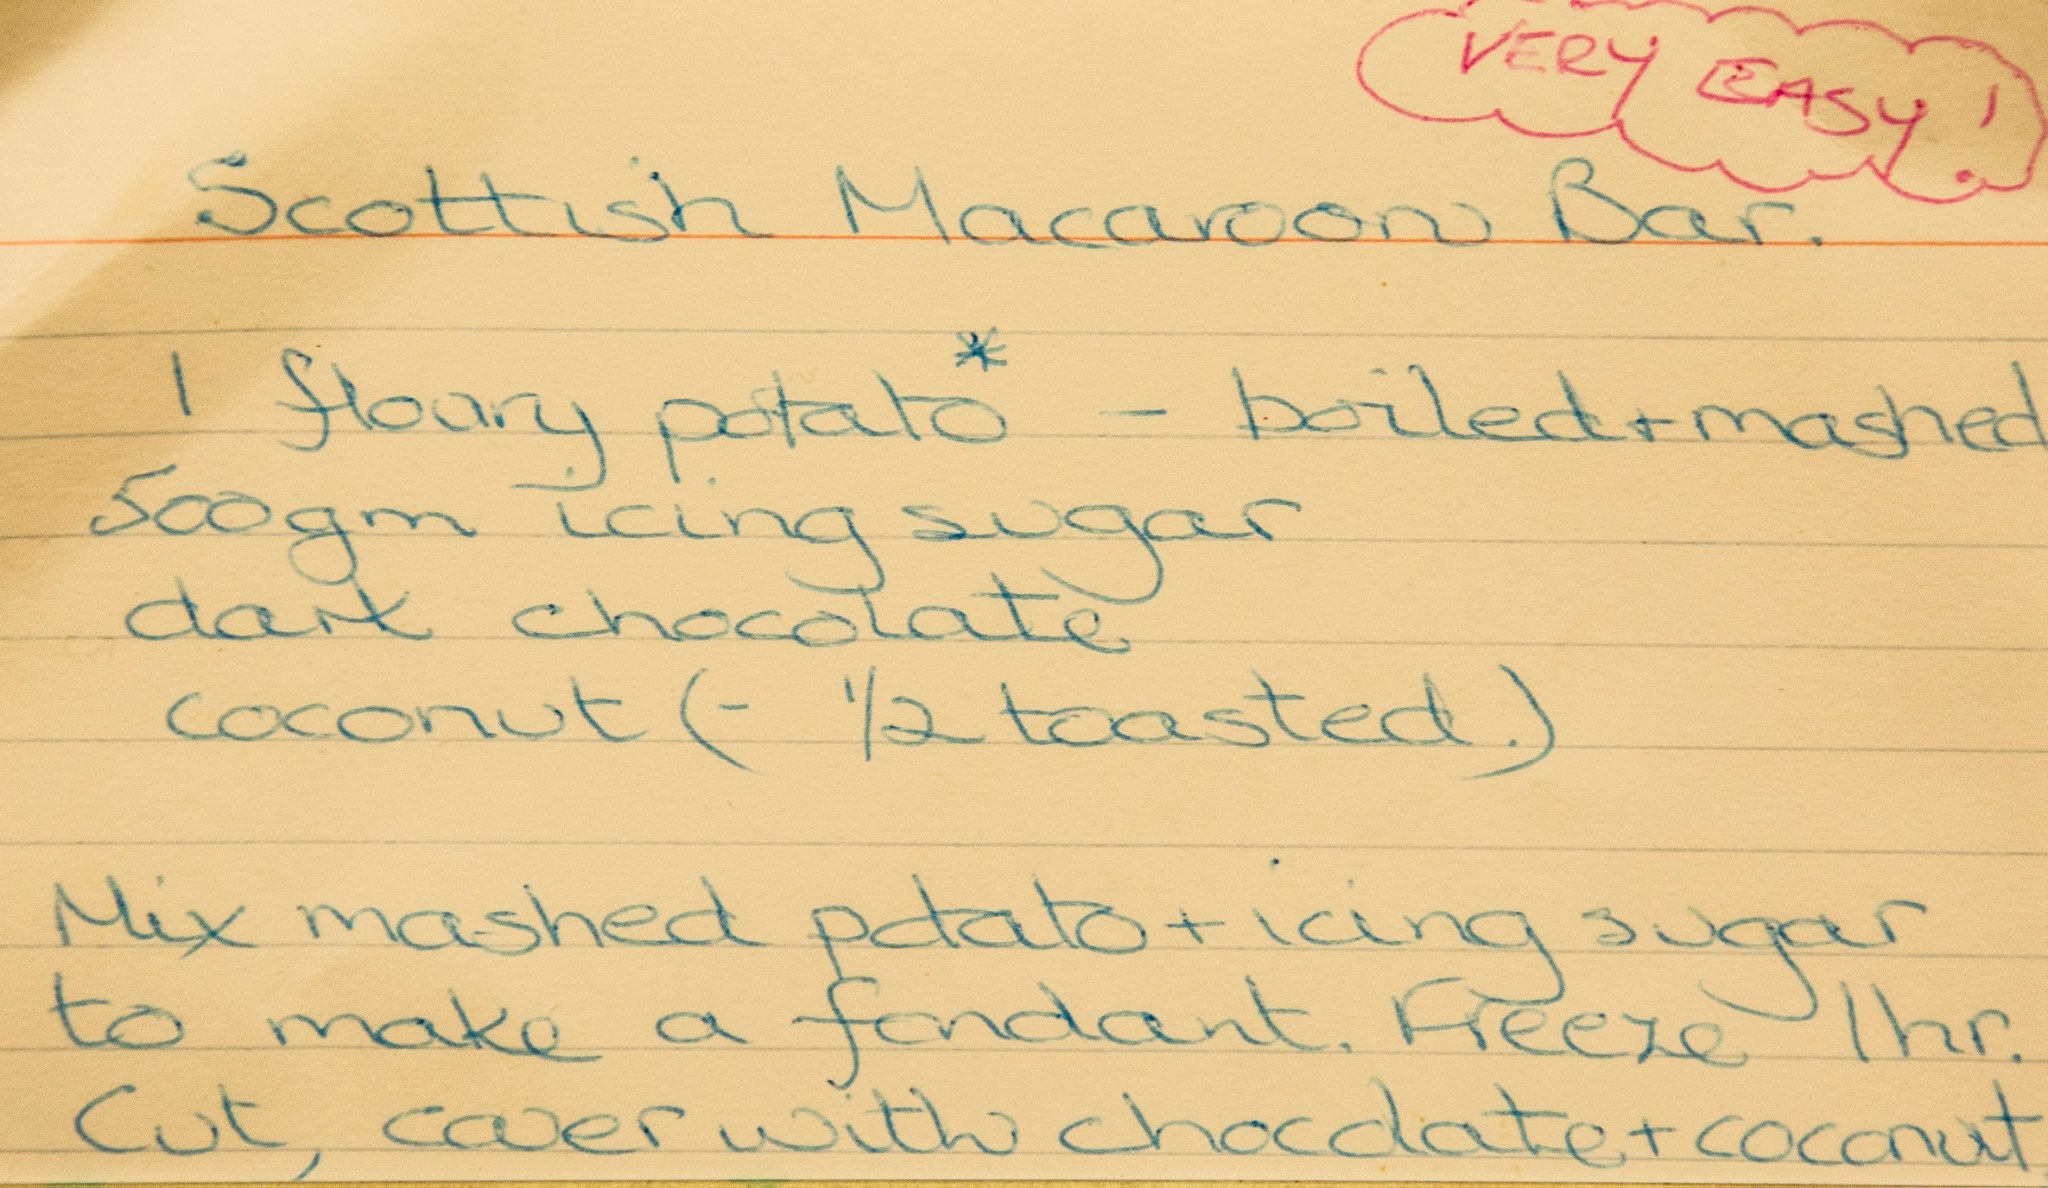 VERY EASY!
Scottish Macaroon Bar.
1 floury potato* - boiled + mashed
500gm icing sugar
dark chocolate
coconut (- 1/2 toasted.)
Mix mashed potato + icing sugar
to make a fondant. Freeze 1hr.
Cut, cover with chocolate + coconut